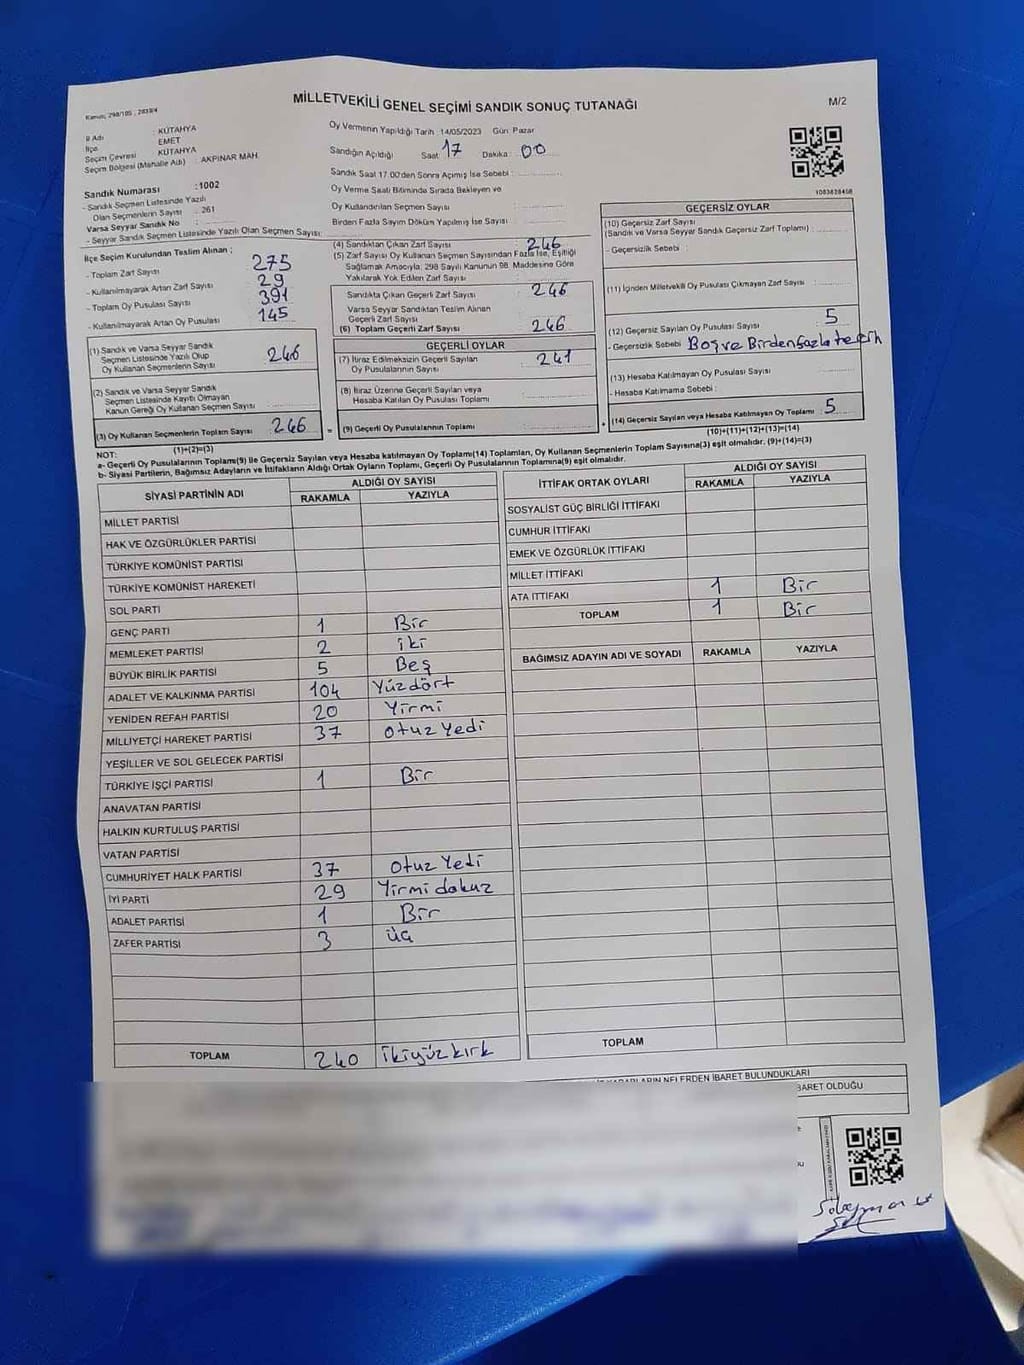 Kanun: 298/105 ; 2839/4
MİLLETVEKİLİ GENEL SEÇİMİ SANDIK SONUÇ TUTANAĞI
M/2
İl Adı : KÜTAHYA
İlçe : EMET
Seçim Çevresi : KÜTAHYA
Seçim Bölgesi (Mahalle Adı) : AKPINAR MAH.
Oy Vermenin Yapıldığı Tarih 14/05/2023 Gün Pazar
Sandığın Açıldığı Saat: 17 Dakika: 00
Sandık Saat 17.00'den Sonra Açılmış İse Sebebi :
Oy Verme Saati Bitiminde Sırada Bekleyen ve
Oy Kullandırılan Seçmen Sayısı
Birden Fazla Sayım Döküm Yapılmış İse Sayısı :
1083828458
Sandık Numarası : 1002
- Sandık Seçmen Listesinde Yazılı
Olan Seçmenlerin Sayısı : 261
Varsa Seyyar Sandık No
- Seyyar Sandık Seçmen Listesinde Yazılı Olan Seçmen Sayısı:
İlçe Seçim Kurulundan Teslim Alınan ;
- Toplam Zarf Sayısı 275
- Kullanılmayarak Artan Zarf Sayısı 29
- Toplam Oy Pusulası Sayısı 391
- Kullanılmayarak Artan Oy Pusulası 145
(1) Sandık ve Varsa Seyyar Sandık
Seçmen Listesinde Yazılı Olup
Oy Kullanan Seçmenlerin Sayısı 246
(2) Sandık ve Varsa Seyyar Sandık
Seçmen Listesinde Kayıtlı Olmayan
Kanun Gereği Oy Kullanan Seçmen Sayısı
(3) Oy Kullanan Seçmenlerin Toplam Sayısı 246
(1)+(2)=(3)
(4) Sandıktan Çıkan Zarf Sayısı 246
(5) Zarf Sayısı Oy Kullanan Seçmen Sayısından Fazla İse, Eşitliği
Sağlamak Amacıyla, 298 Sayılı Kanunun 98. Maddesine Göre
Yakılarak Yok Edilen Zarf Sayısı
Sandıkta Çıkan Geçerli Zarf Sayısı : 246
Varsa Seyyar Sandıktan Teslim Alınan
Geçerli Zarf Sayısı
(6) Toplam Geçerli Zarf Sayısı : 246
GEÇERLİ OYLAR
(7) İtiraz Edilmeksizin Geçerli Sayılan
Oy Pusulalarının Sayısı : 241
(8) İtiraz Üzerine Geçerli Sayılan veya
Hesaba Katılan Oy Pusulası Toplamı
= (9) Geçerli Oy Pusulalarının Toplamı
GEÇERSİZ OYLAR
(10) Geçersiz Zarf Sayısı
(Sandık ve Varsa Seyyar Sandık Geçersiz Zarf Toplamı) :
- Geçersizlik Sebebi :
(11) İçinden Milletvekili Oy Pusulası Çıkmayan Zarf Sayısı
(12) Geçersiz Sayılan Oy Pusulası Sayısı : 5
- Geçersizlik Sebebi Boş ve Birden fazla tercih
(13) Hesaba Katılmayan Oy Pusulası Sayısı
- Hesaba Katılmama Sebebi :
+ (14) Geçersiz Sayılan veya Hesaba Katılmayan Oy Toplamı : 5
(10)+(11)+(12)+(13)=(14)
NOT:
a- Geçerli Oy Pusulalarının Toplamı(9) ile Geçersiz Sayılan veya Hesaba katılmayan Oy Toplamı(14) Toplamları, Oy Kullanan Seçmenlerin Toplam Sayısına(3) eşit olmalıdır. (9)+(14)=(3)
b- Siyasi Partilerin, Bağımsız Adayların ve İttifakların Aldığı Ortak Oyların Toplamı, Geçerli Oy Pusulalarının Toplamına(9) eşit olmalıdır.
SİYASİ PARTİNİN ADI ALDIĞI OY SAYISI
RAKAMLA YAZIYLA
MİLLET PARTİSİ
HAK VE ÖZGÜRLÜKLER PARTİSİ
TÜRKİYE KOMÜNİST PARTİSİ
TÜRKİYE KOMÜNİST HAREKETİ
SOL PARTİ
GENÇ PARTİ 1 Bir
MEMLEKET PARTİSİ 2 iki
BÜYÜK BİRLİK PARTİSİ 5 Beş
ADALET VE KALKINMA PARTİSİ 104 Yüzdört
YENİDEN REFAH PARTİSİ 20 Yirmi
MİLLİYETÇİ HAREKET PARTİSİ 37 Otuz Yedi
YEŞİLLER VE SOL GELECEK PARTİSİ
TÜRKİYE İŞÇİ PARTİSİ 1 Bir
ANAVATAN PARTİSİ
HALKIN KURTULUŞ PARTİSİ
VATAN PARTİSİ
CUMHURİYET HALK PARTİSİ 37 Otuz Yedi
İYİ PARTİ 29 Yirmi dokuz
ADALET PARTİSİ 1 Bir
ZAFER PARTİSİ 3 üç
TOPLAM 240 ikiyüzkırk
İTTİFAK ORTAK OYLARI ALDIĞI OY SAYISI
RAKAMLA YAZIYLA
SOSYALİST GÜÇ BİRLİĞİ İTTİFAKI
CUMHUR İTTİFAKI
EMEK VE ÖZGÜRLÜK İTTİFAKI
MİLLET İTTİFAKI
ATA İTTİFAKI 1 Bir
TOPLAM 1 Bir
BAĞIMSIZ ADAYIN ADI VE SOYADI RAKAMLA YAZIYLA
TOPLAM
NELERDEN İBARET BULUNDUKLARI
BARET OLDUĞU